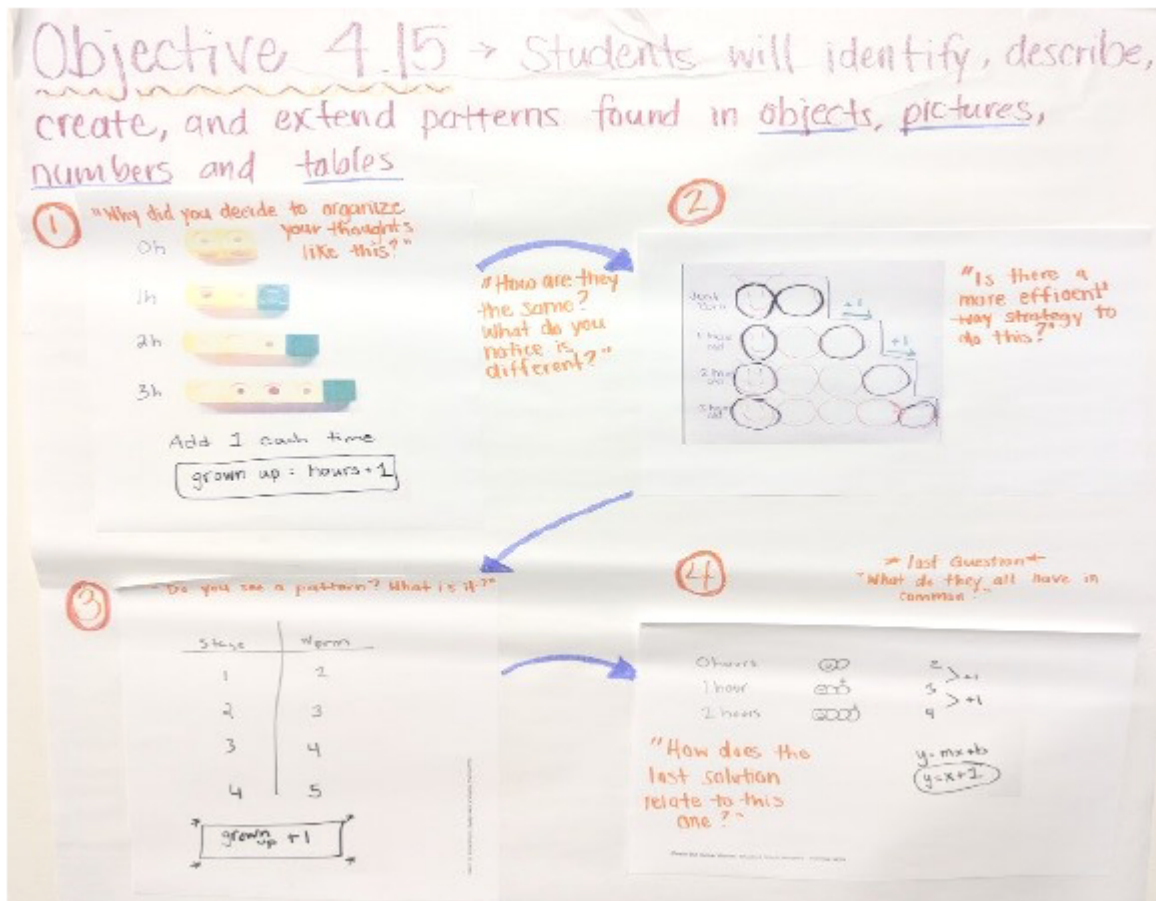 Objective 4.15 → Students will identify, describe,
create, and extend patterns found in objects, pictures,
numbers and tables
1
"Why did you decide to organize
your thoughts
like this?"
0h
1h
2h
3h
Add 1 each time
grown up = hours + 1
"How are they
the same?
What do you
notice is
different?"
2
+1
+1
1 hour
old
2 hour
old
3 hour
old
"Is there a
more effient
way strategy to
do this?"
3
Do you see a pattern? What is it?"
Stage Worm
1 2
2 3
3 4
4 5
grown up +1
4
*last Question*
"What do they all have in
common"
0 hours 2
1 hour 3 >+1
2 hours 4 >+1
y=mx+b
y=x+2
"How does the
last solution
relate to this
one?"